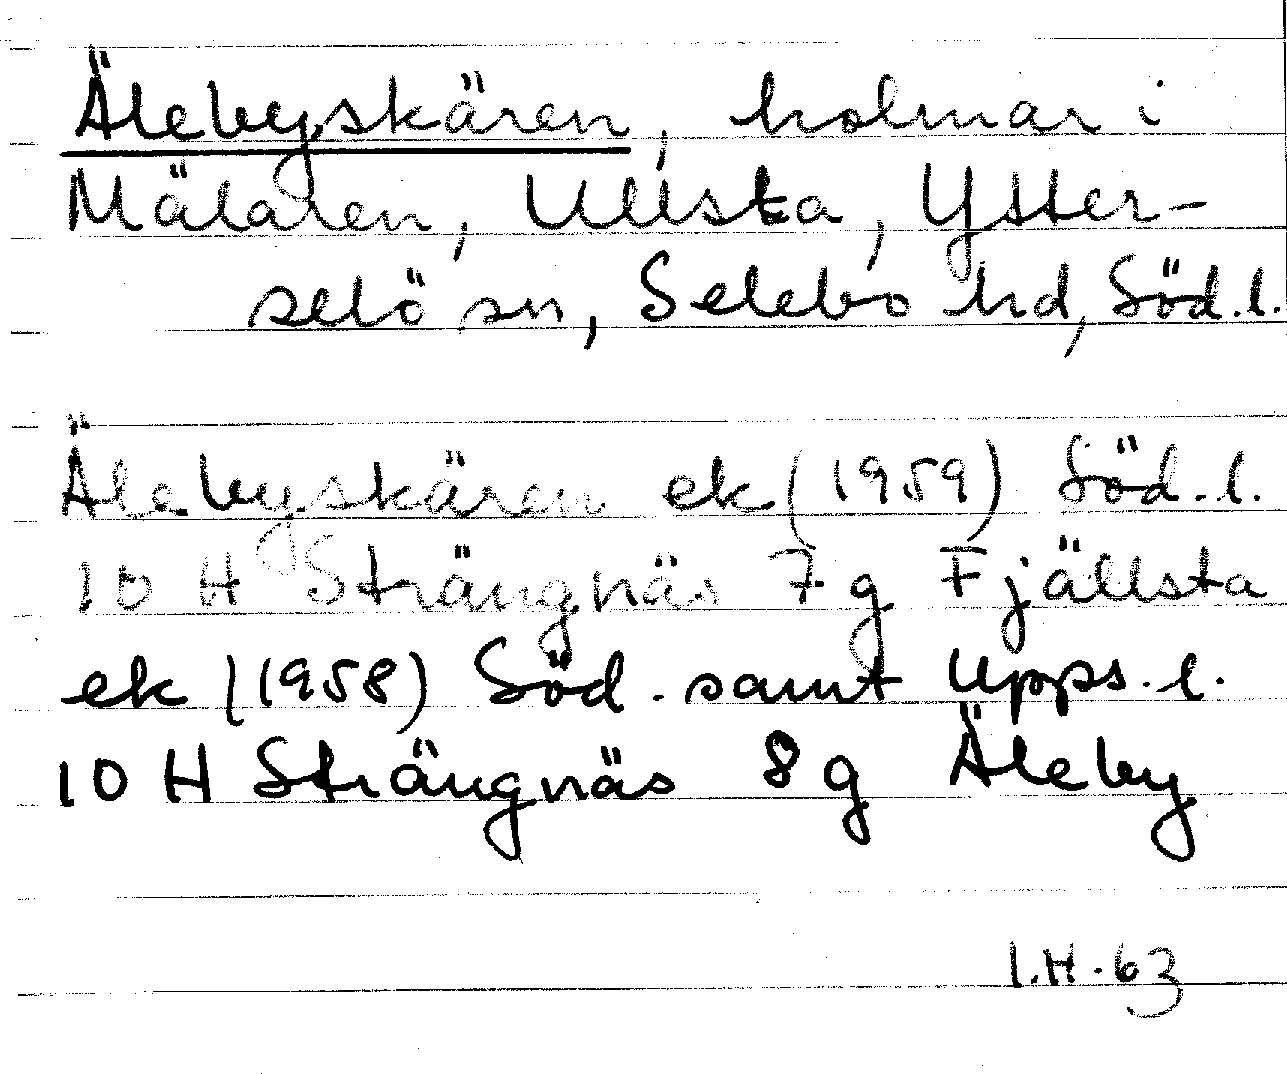 Älebyskären, holmar i
Mälaren, Ullsta, Ytter-
selö sn, Selebo hd, Söd.l.
Älebyskären ek (1959) Söd.l.
10 H Strängnäs 7 g Fjällsta
ek (1958) Söd. samt Upps.l.
10 H Strängnäs 8 g Äleby
I.H. 63